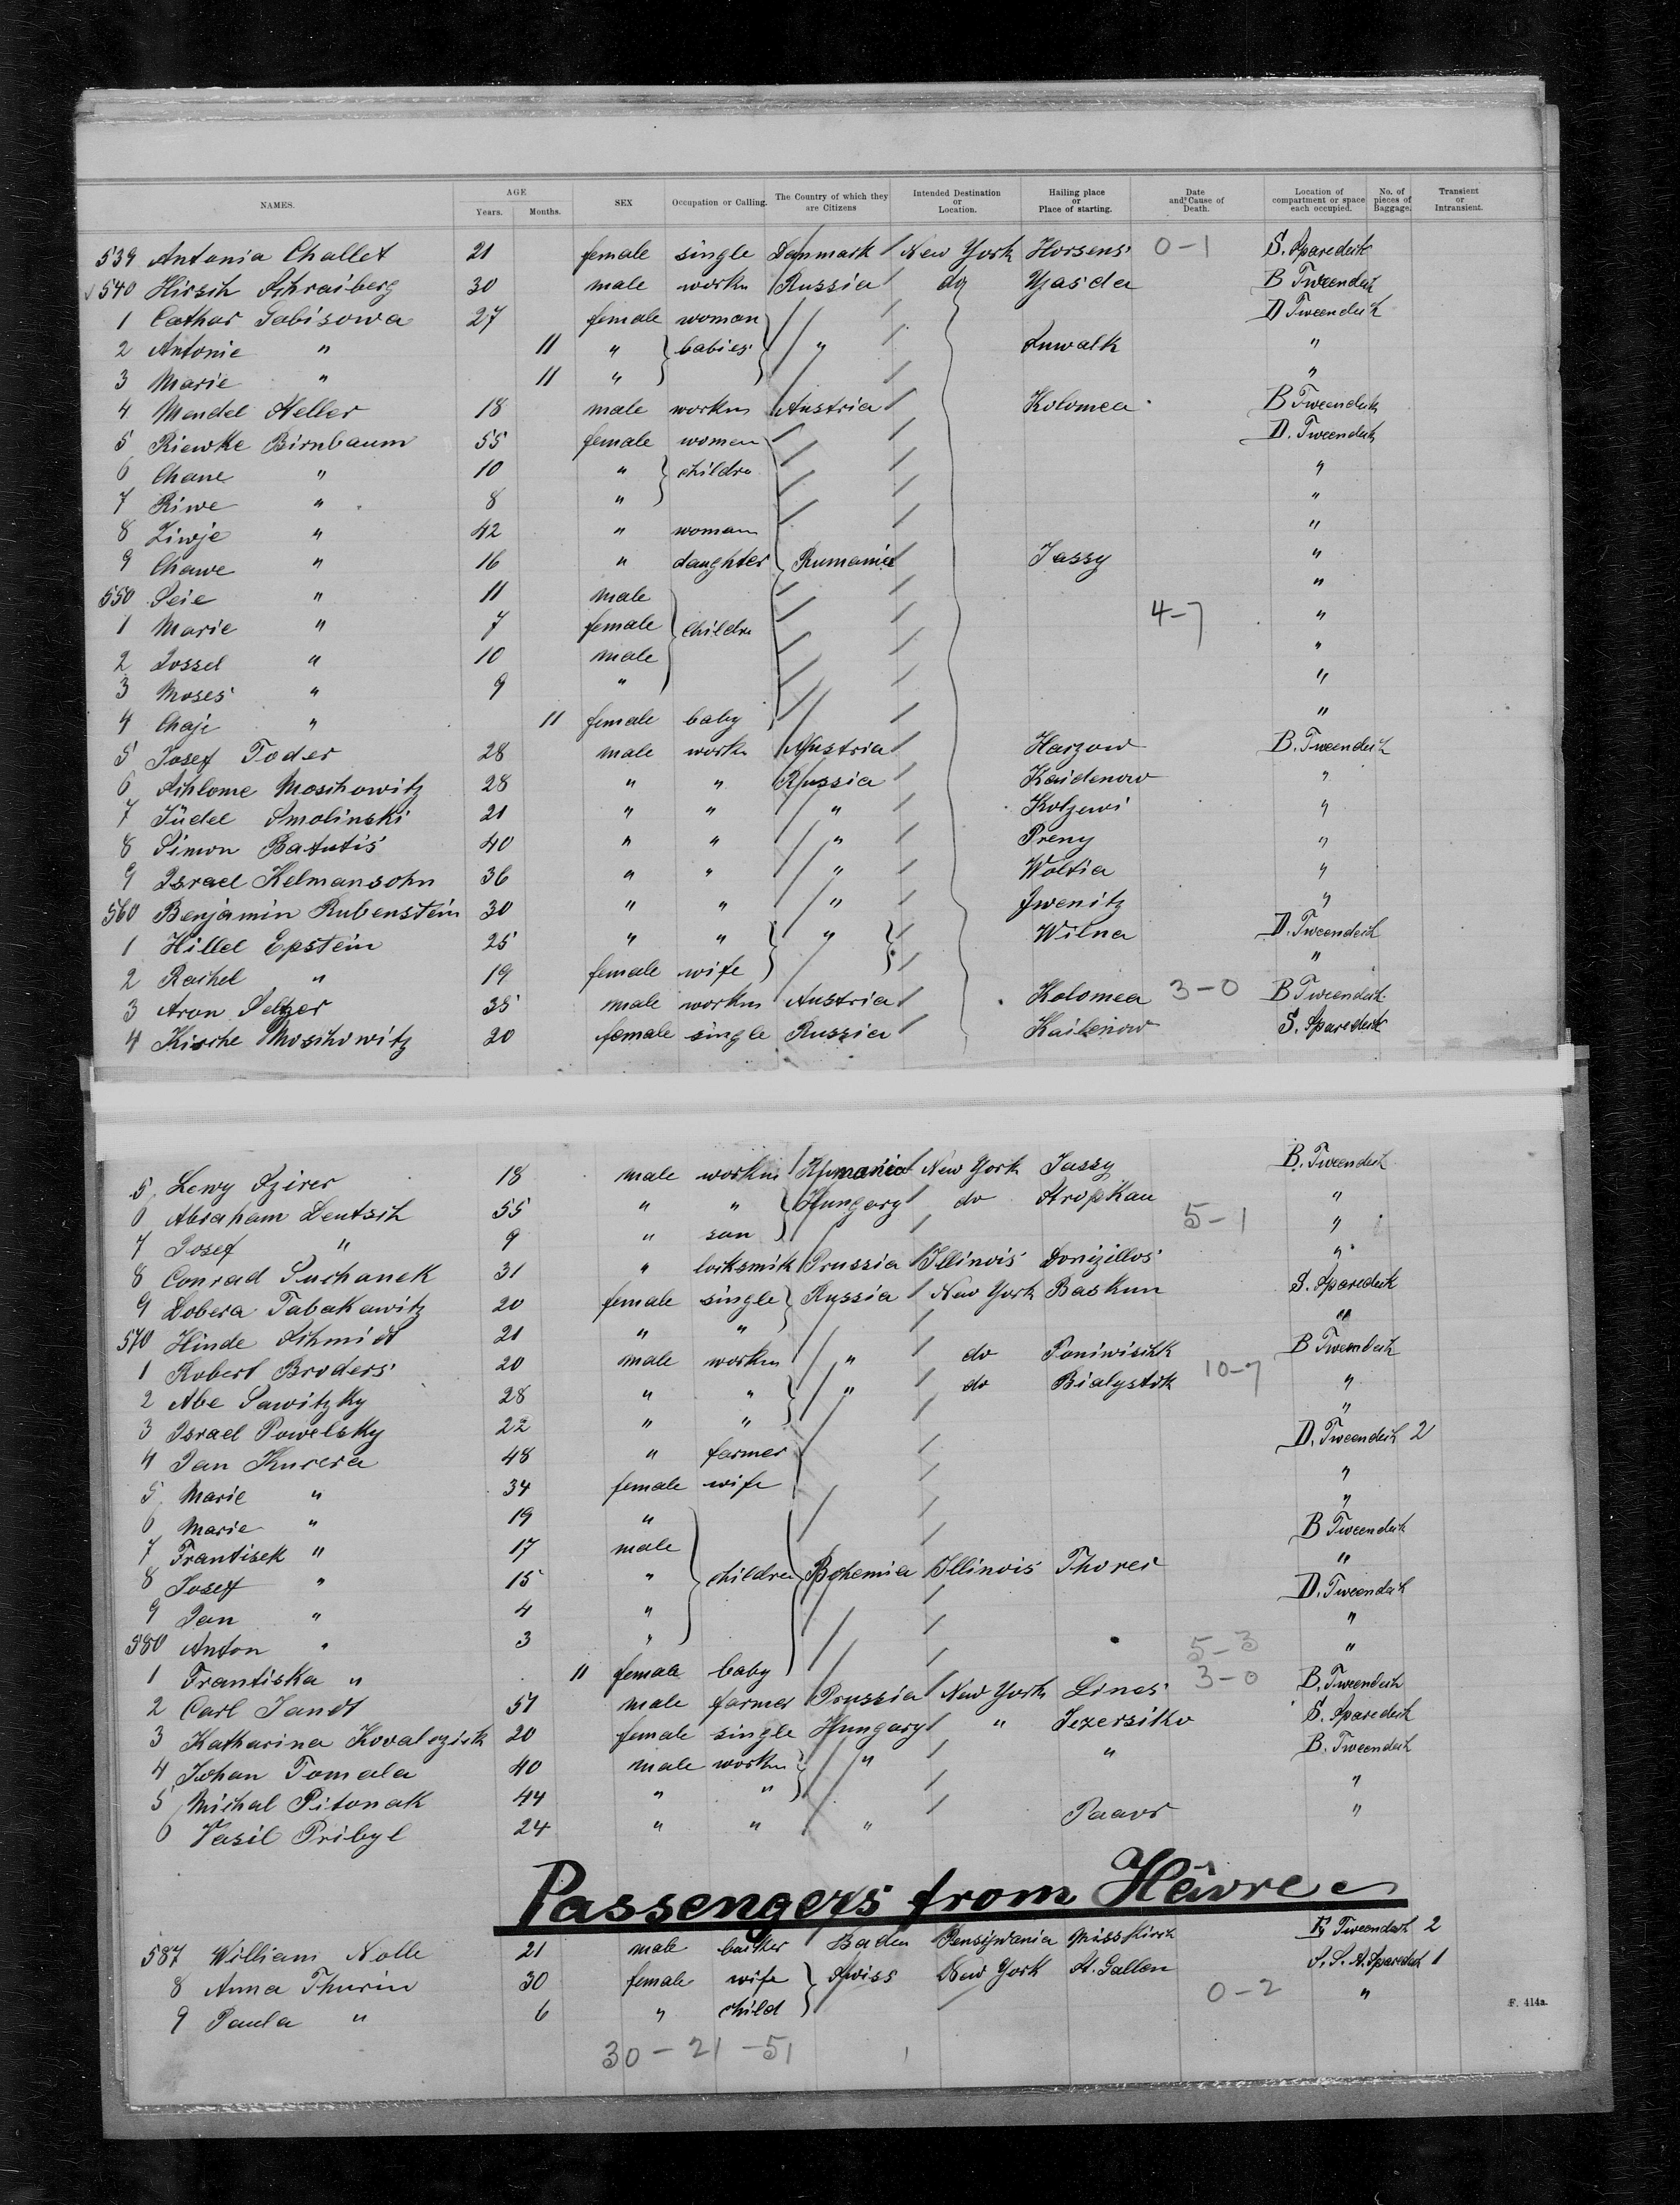 NAMES. AGE Years. Months. SEX Occupation or Calling. The Country of which they are Citizens Intended Destination or Location. Hailing place or Place of starting. Date and Cause of Death. Location of compartment or space each occupied. No. of pieces of Baggage. Transient or Intransient.
539 Antonia Challet 21 female single Danmark New York Horsens 0-1 S. Sparedeck
540 Hirsch Schraiberg 30 male workm Russia do Yasda B Tweendeck
1 Cathar Sabisowa 27 female woman D Tweendeck
2 Antonie " 11 " babies " Suwalk "
3 Marie " 11 " "
4 Mendel Heller 18 male workm Austria Kolomea B Tweendeck
5 Riewke Birnbaum 55 female woman D. Tweendeck
6 Chane " 10 " childre "
7 Riwe " 8 " "
8 Ziwje " 42 " woman "
9 Chawe " 16 " daughter Rumania Jassy "
550 Seie " 11 male "
1 Marie " 7 female childre 4-7 "
2 Jossel " 10 male "
3 Moses " 9 " "
4 Chaje " 11 female baby "
5 Josef Toder 28 male workm Austria Harzow B. Tweendeck
6 Schlome Moschowitz 28 " " Russia Kaidenow "
7 Jüdel Smolinski 21 " " " Kotzewi "
8 Simon Batutis 40 " " " Preny "
9 Israel Kelmansohn 36 " " " Woltia "
560 Benjamin Rubenstein 30 " " " Jwenitz "
1 Hillel Epstein 25 " " " Wilna D. Tweendeck
2 Rachel " 19 female wife "
3 Aron Seltzer 35 male workm Austria Kolomea 3-0 B Tweendeck
4 Kische Moschowitz 20 female single Russia Kaidenow S. Sparedeck
5 Lewy Szirer 18 male workm Rumania New York Jassy B. Tweendeck
6 Abraham Deutsch 55 " " Hungary do Stropkau "
7 Josef " 9 " son 5-1 "
8 Conrad Suchanek 31 " locksmith Prussia Illinois Donizillos "
9 Dobera Tabakawitz 20 female single Russia New York Baskun S. Sparedeck
570 Hinde Schmidt 21 " " "
1 Robert Broders 20 male workm " do Poniwischk B Tweendeck
2 Abe Sawitzky 28 " " " do Bialystok 10-7 "
3 Israel Powelsky 22 " " "
4 Jan Kucera 48 " farmer D. Tweendeck 2
5 Marie " 34 female wife "
6 Marie " 19 " "
7 Frantisek " 17 male B Tweendeck
8 Josef " 15 " children Bohemia Illinois Thores "
9 Jan " 4 " D. Tweendeck
580 Anton " 3 " "
1 Frantiska " 11 female baby 5-3 "
2 Carl Jandt 51 male farmer Prussia New York Lines 3-0 B. Tweendeck
3 Katharina Kovalczick 20 female single Hungary " Jezersitko S. Sparedeck
4 Johan Tomala 40 male workm " " B. Tweendeck
5 Michal Pitonak 44 " " "
6 Vasil Pribyl 24 " " " Paavs "
Passengers from Hâvre
587 William Nolle 21 male Baden Pensylvania Misskirch Tweendeck 2
8 Anna Thurin 30 female wife Swiss New York St. Gallen Sparedeck 1
9 Paula " 6 " child 0-2 "
F. 414a.
30-21-51